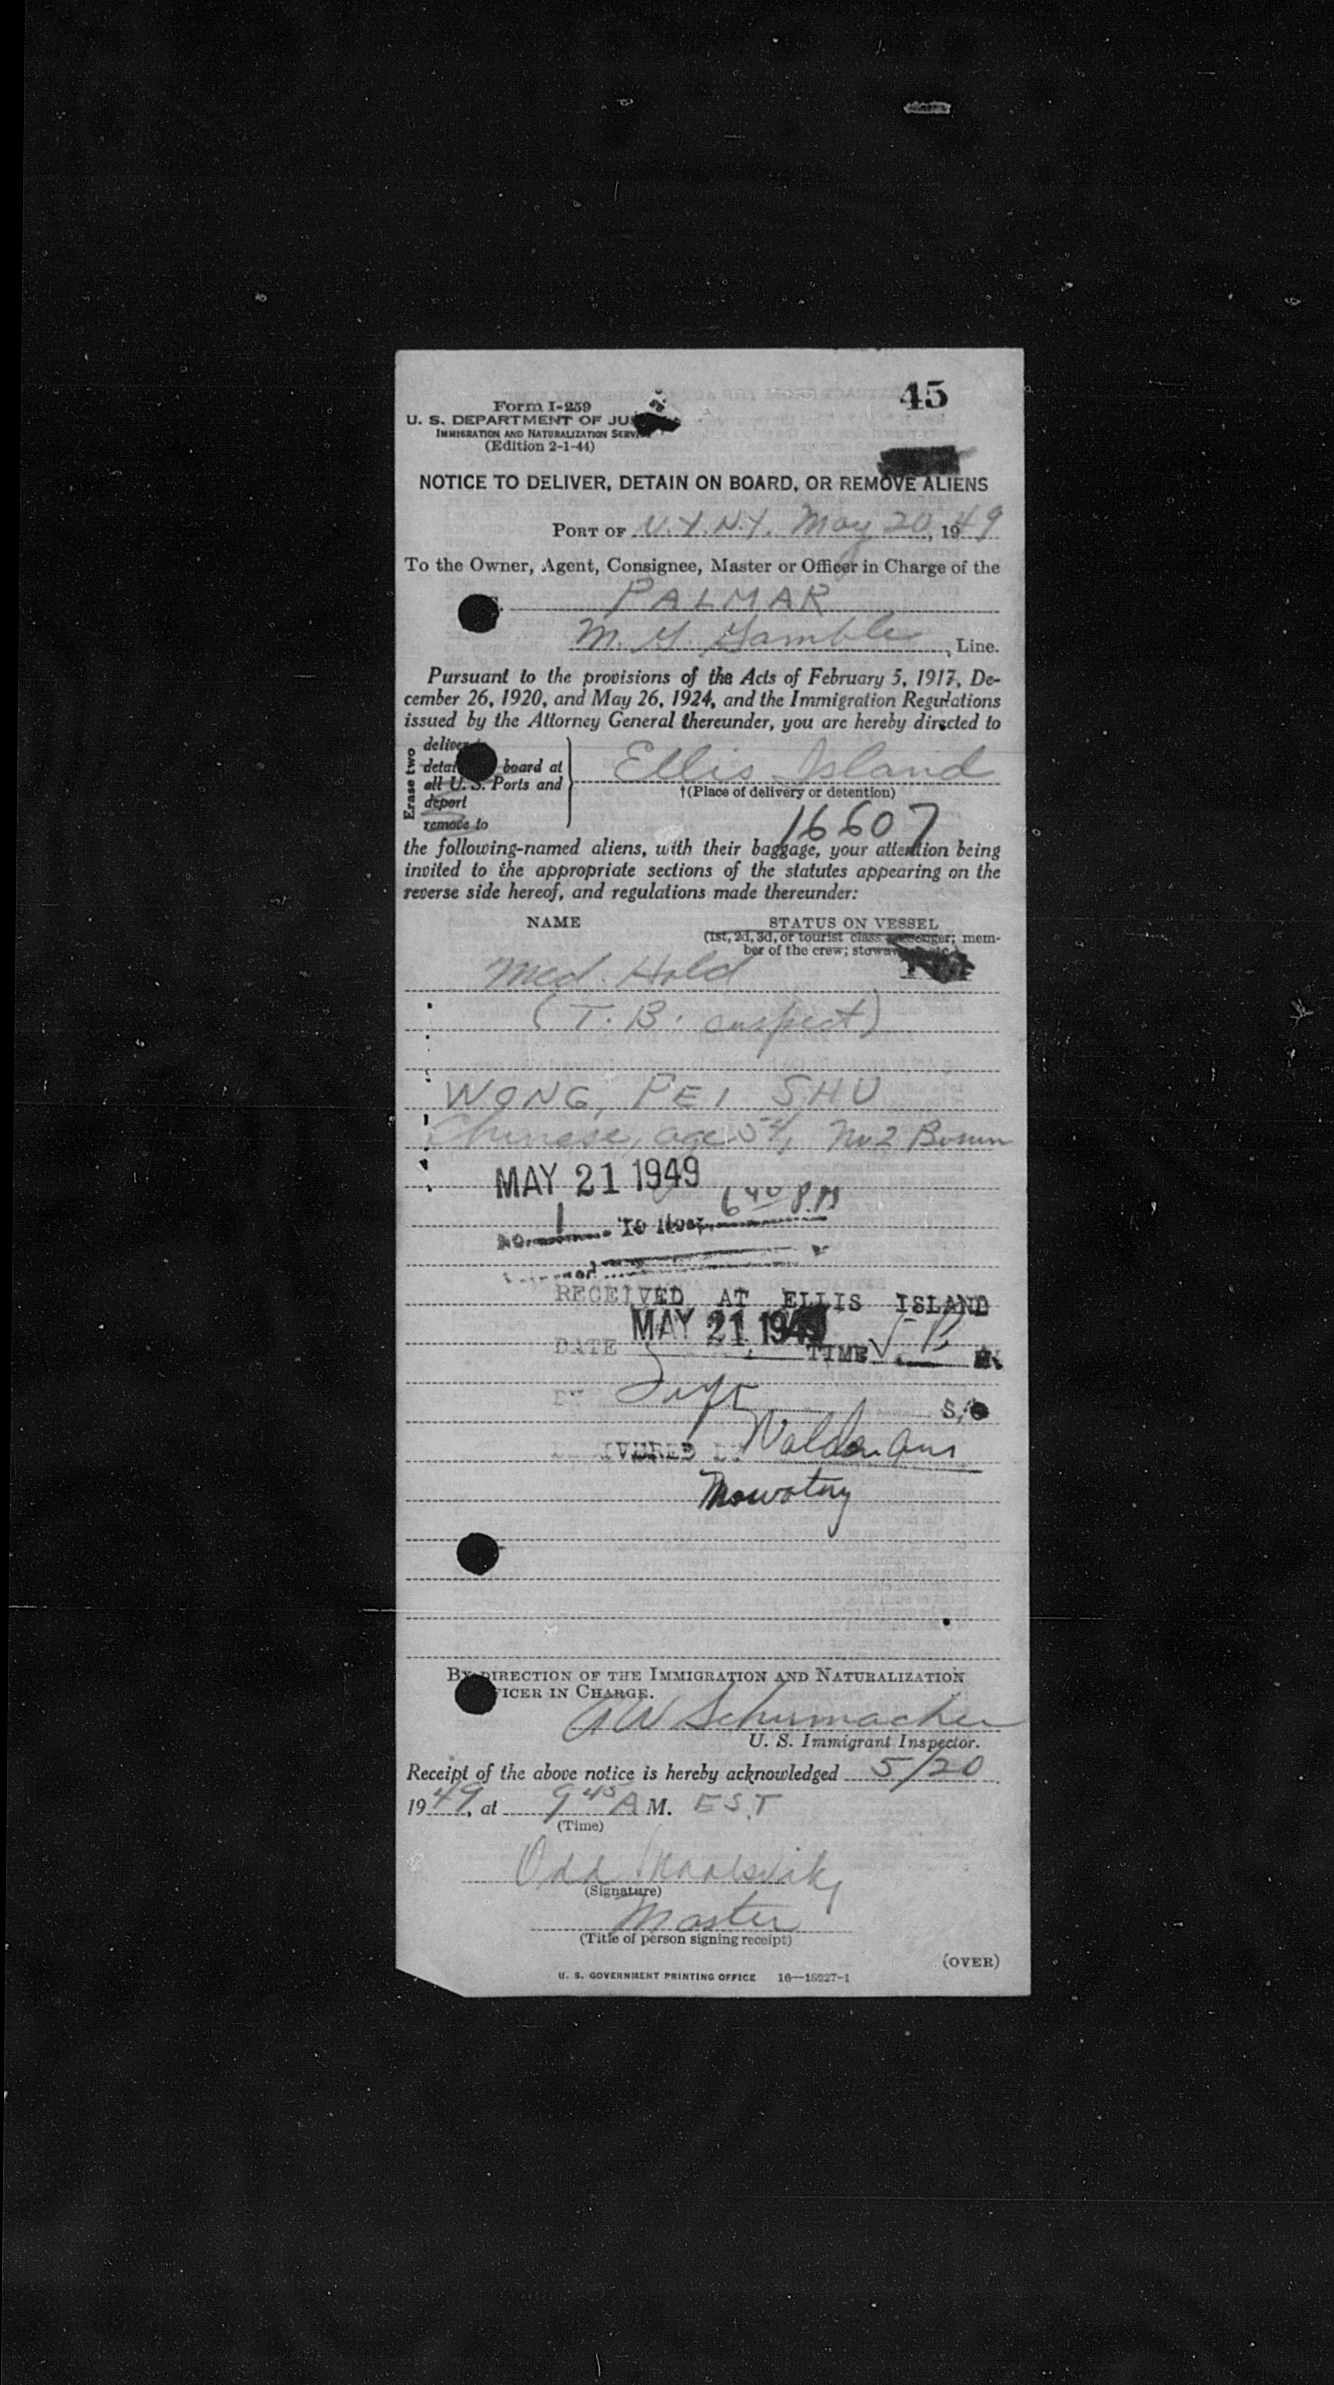 45
Form I-259
U. S. DEPARTMENT OF
IMMIGRATION AND NATURALIZATION
(Edition 2-1-44)
NOTICE TO DELIVER, DETAIN ON BOARD, OR REMOVE ALIENS
PORT OF N.Y.N.Y. May 20, 1949
To the Owner, Agent, Consignee, Master or Officer in Charge of the
PALMAR
M. G. Gamble, Line.
Pursuant to the provisions of the Acts of February 5, 1917, De-
cember 26, 1920, and May 26, 1924, and the Immigration Regulations
issued by the Attorney General thereunder, you are hereby directed to
Erase two
board at
all U. S. Ports and
deport
remove to
Ellis Island
†(Place of delivery or detention)
16607
the following-named aliens, with their baggage, your attention being
invited to the appropriate sections of the statutes appearing on the
reverse side hereof, and regulations made thereunder:
NAME STATUS ON VESSEL
(1st, 2d, 3d, or tourist class passenger; mem-
ber of the crew;
Med. Hold
(T. B. suspect)
WONG, PEI SHU
Chinese, age 54, No 2 Bosun
MAY 21 1949
No. 1 To Hosp. 6 40 P.M
RECEIVED AT ELLIS ISLAND
DATE MAY 21 1949 TIME
Mowotny
BY DIRECTION OF THE IMMIGRATION AND NATURALIZATION
IN CHARGE.
A W Schumacher
U. S. Immigrant Inspector.
Receipt of the above notice is hereby acknowledged 5/20
1949, at 9 45 A M. EST
(Time)
Odd
(Signature)
Master
(Title of person signing receipt)
(OVER)
U. S. GOVERNMENT PRINTING OFFICE 16—15227-1